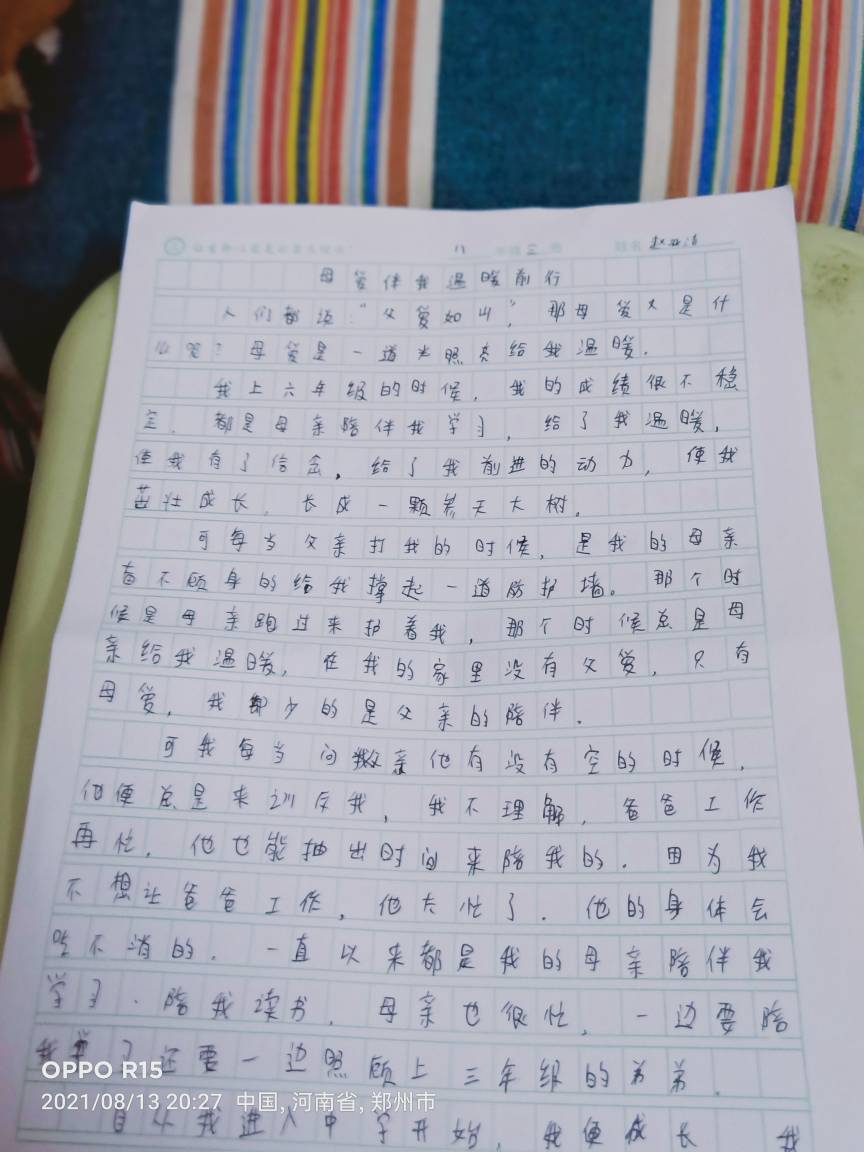 八 年级 三 班 姓名
母爱伴我温暖前行
人们都说“父爱如山”，那母爱又是什
么呢？母爱是一道光照亮给我温暖．
我上六年级的时候，我的成绩很不稳
定．都是母亲陪伴我学习，给了我温暖，
使我有了信念，给了我前进的动力，使我
茁壮成长，长成一颗养天大树。
可每当父亲打我的时候，是我的母亲
奋不顾身的给我撑起一道防护墙。那个时
候是母亲跑过来护着我，那个时候总是母
亲给我温暖，在我的家里没有父爱，只有
母爱，我却少的是父亲的陪伴．
可我每当问父亲他有没有空的时候，
他便总是来训斥我，我不理解，爸爸工作
再忙，他也能抽出时间来陪我的．因为我
不想让爸爸工作，他太忙了．他的身体会
吃不消的．一直以来都是我的母亲陪伴我
学习．陪我读书，母亲也很忙，一边要陪
我学习还要一边照顾上三年级的弟弟．
自从我进入中学开始，我便成长 我
OPPO R15
2021/08/13 20:27 中国, 河南省, 郑州市